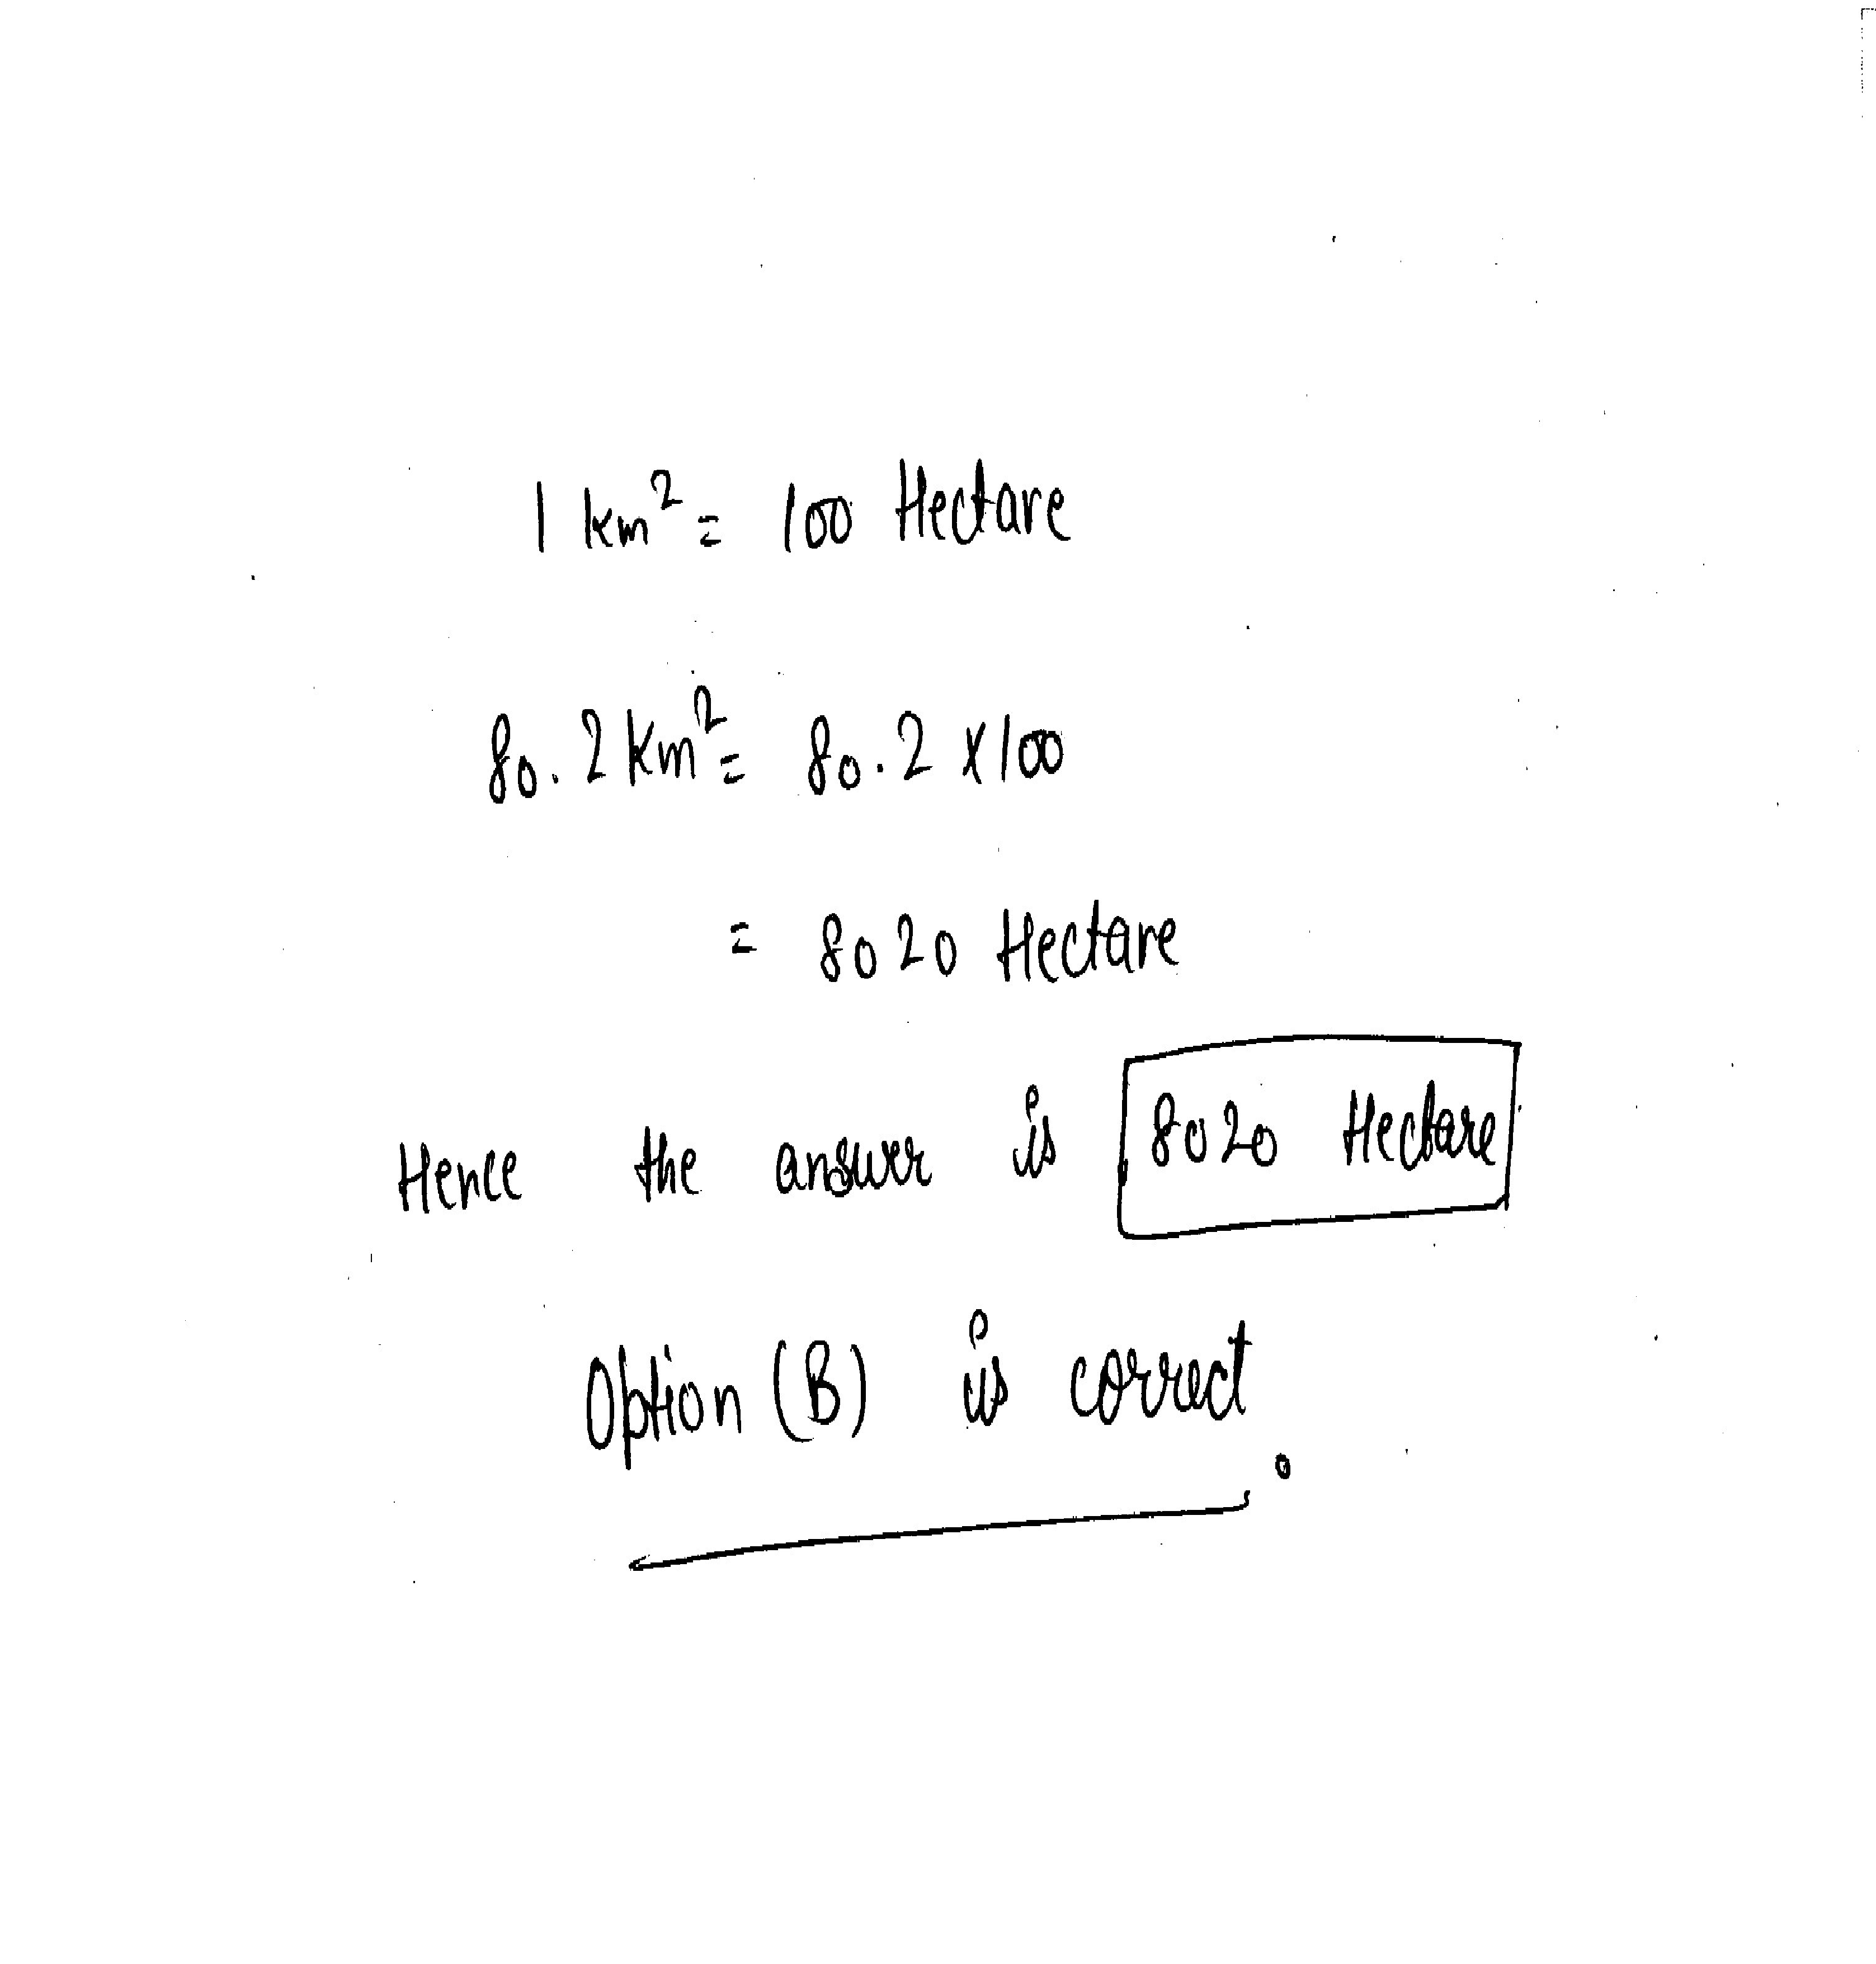 1 km² = 100 Hectare
80.2 km² = 80.2 x 100
= 8020 Hectare
Hence the answer is 8020 Hectare
Option (B) is correct.